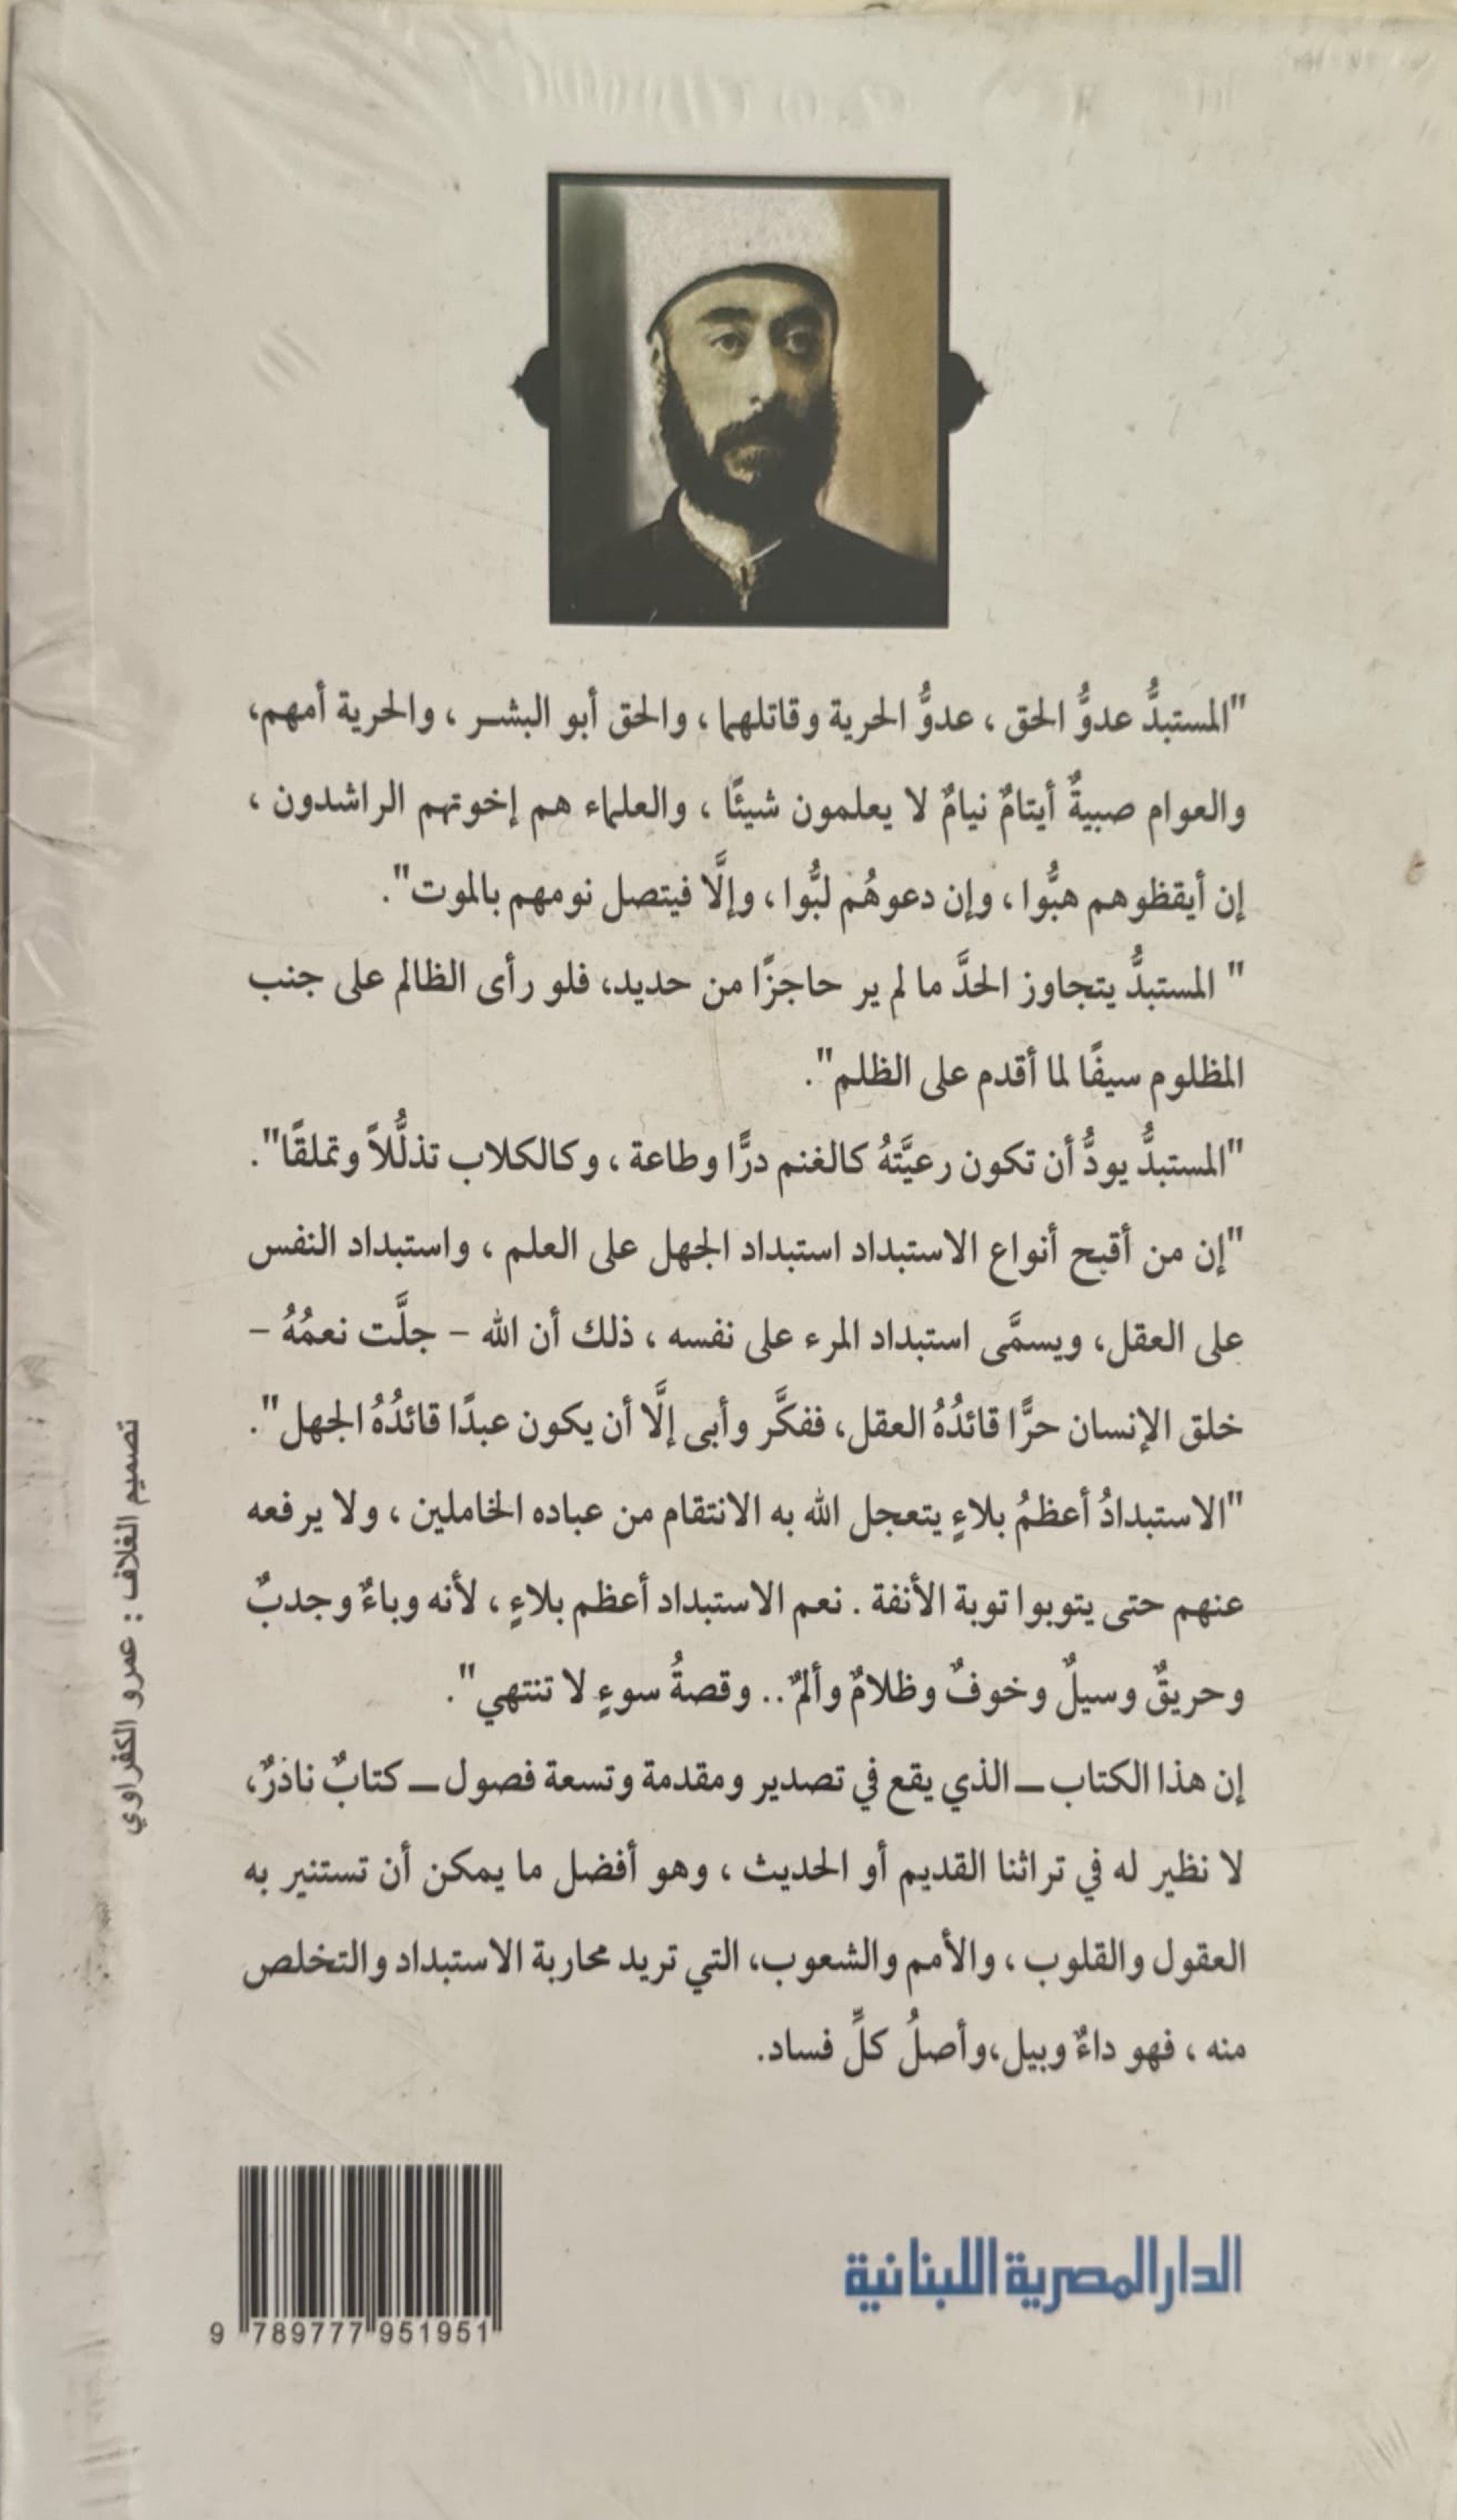 "المستبدُّ عدوُّ الحق ، عدوُّ الحرية وقاتلهما ، والحق أبو البشر ، والحرية أمهم،
والعوام صبيةٌ أيتامٌ نيامٌ لا يعلمون شيئًا ، والعلماء هم إخوتهم الراشدون ،
إن أيقظوهم هبُّوا ، وإن دعوهُم لبُّوا ، وإلَّا فيتصل نومهم بالموت".
" المستبدُّ يتجاوز الحدَّ ما لم ير حاجزًا من حديد، فلو رأى الظالم على جنب
المظلوم سيفًا لما أقدم على الظلم".
"المستبدُّ يودُّ أن تكون رعيَّتهُ كالغنم درًّا وطاعة ، وكالكلاب تذلُّلاً وتملقًا".
"إن من أقبح أنواع الاستبداد استبداد الجهل على العلم ، واستبداد النفس
على العقل، ويسمَّى استبداد المرء على نفسه ، ذلك أن الله – جلَّت نعمُهُ –
خلق الإنسان حرًّا قائدُهُ العقل، ففكَّر وأبى إلَّا أن يكون عبدًا قائدُهُ الجهل".
"الاستبدادُ أعظمُ بلاءٍ يتعجل الله به الانتقام من عباده الخاملين ، ولا يرفعه
عنهم حتى يتوبوا توبة الأنفة . نعم الاستبداد أعظم بلاءٍ ، لأنه وباءٌ وجدبٌ
وحريقٌ وسيلٌ وخوفٌ وظلامٌ وألمٌ .. وقصةُ سوءٍ لا تنتهي".
إن هذا الكتاب ــ الذي يقع في تصدير ومقدمة وتسعة فصول ــ كتابٌ نادرٌ،
لا نظير له في تراثنا القديم أو الحديث ، وهو أفضل ما يمكن أن تستنير به
العقول والقلوب ، والأمم والشعوب، التي تريد محاربة الاستبداد والتخلص
منه ، فهو داءٌ وبيل،وأصلُ كلِّ فساد.
تصميم الغلاف : عمرو الكفراوي
الدار المصرية اللبنانية
9 789777 951951